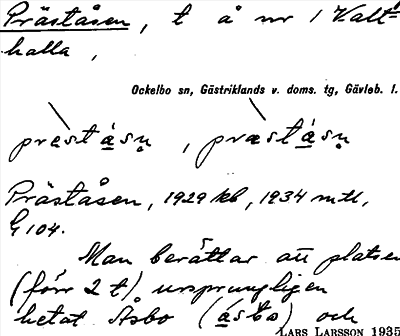 Präståsen, t å nr 1 Valt=
halla,
Ockelbo sn, Gästriklands v. doms. tg, Gävleb. l.
præstásṇ, præstásṇ
Präståsen, 1929 kb, 1934 mtl,
G 104.
Man berättar att platsen
(förr 2 t) ursprungligen
hetat Åsbo (ásbo) och
LARS LARSSON 1935